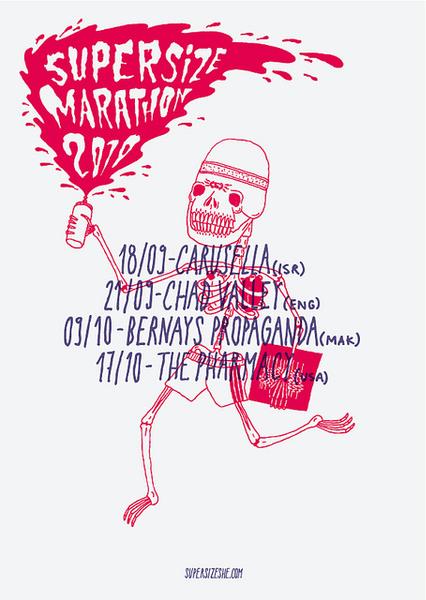 SUPERSIZE
MARATHON
2010
18/09-CARUSELLA(ISR)
21/09-CHAD VALLEY(ENG)
09/10-BERNAYS PROPAGANDA(MAK)
17/10-THE PHARMACY(USA)
SUPERSIZESHE.COM